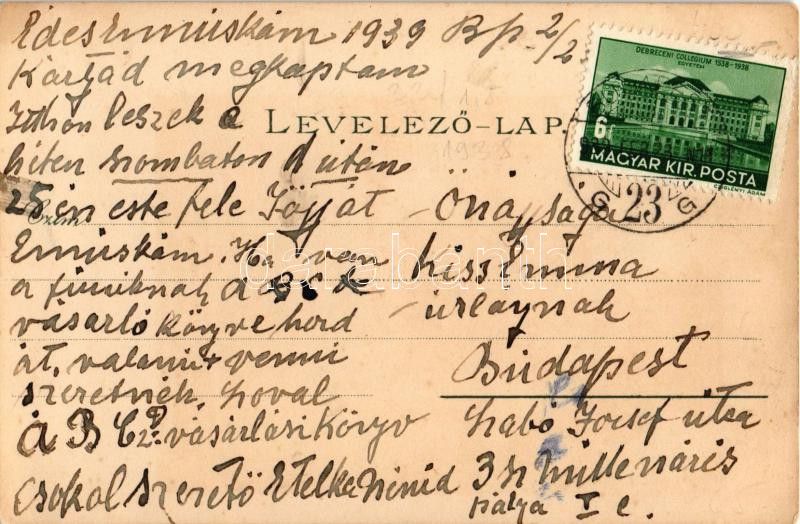 Édes Emuskám 1939 Bp 2/2
Kártyád megkaptam
Itthon leszek e
héten szombaton d után
25 én este fele Jöjját
Emuskám. Ha van
a fiuiknak a B C
vásárló könyve hord
át, valamit venni
szeretnék, hoval
A B Cz: vásárlási Könyv
Csokol szerető Etelke nénid
LEVELEZŐ-LAP.
DEBRECENI COLLEGIUM 1538-1938
EGYETEM
6f
MAGYAR KIR. POSTA
23
Önagysága
Kiss Emma
urleánynak
Budapest
Szabó Jozsef utca
3 sz Millenáris
pálya I e.
darabanth